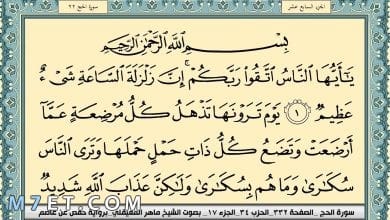 الجزء السابع عشر
سورة الحج ٢٢
بِسْمِ اللَّهِ الرَّحْمَٰنِ الرَّحِيمِ
يَٰٓأَيُّهَا النَّاسُ اتَّقُوا رَبَّكُمْ ۚ إِنَّ زَلْزَلَةَ السَّاعَةِ شَىْءٌ
عَظِيمٌ ١ يَوْمَ تَرَوْنَهَا تَذْهَلُ كُلُّ مُرْضِعَةٍ عَمَّآ
أَرْضَعَتْ وَتَضَعُ كُلُّ ذَاتِ حَمْلٍ حَمْلَهَا وَتَرَى النَّاسَ
سُكَٰرَىٰ وَمَا هُم بِسُكَٰرَىٰ وَلَٰكِنَّ عَذَابَ اللَّهِ شَدِيدٌ
M7ET.COM
سورة الحج _الصفحة ٣٣٢_الحزب ٣٤_الجزء ١٧_ بصوت الشيخ ماهر المعيقلي _برواية حفص عن عاصم